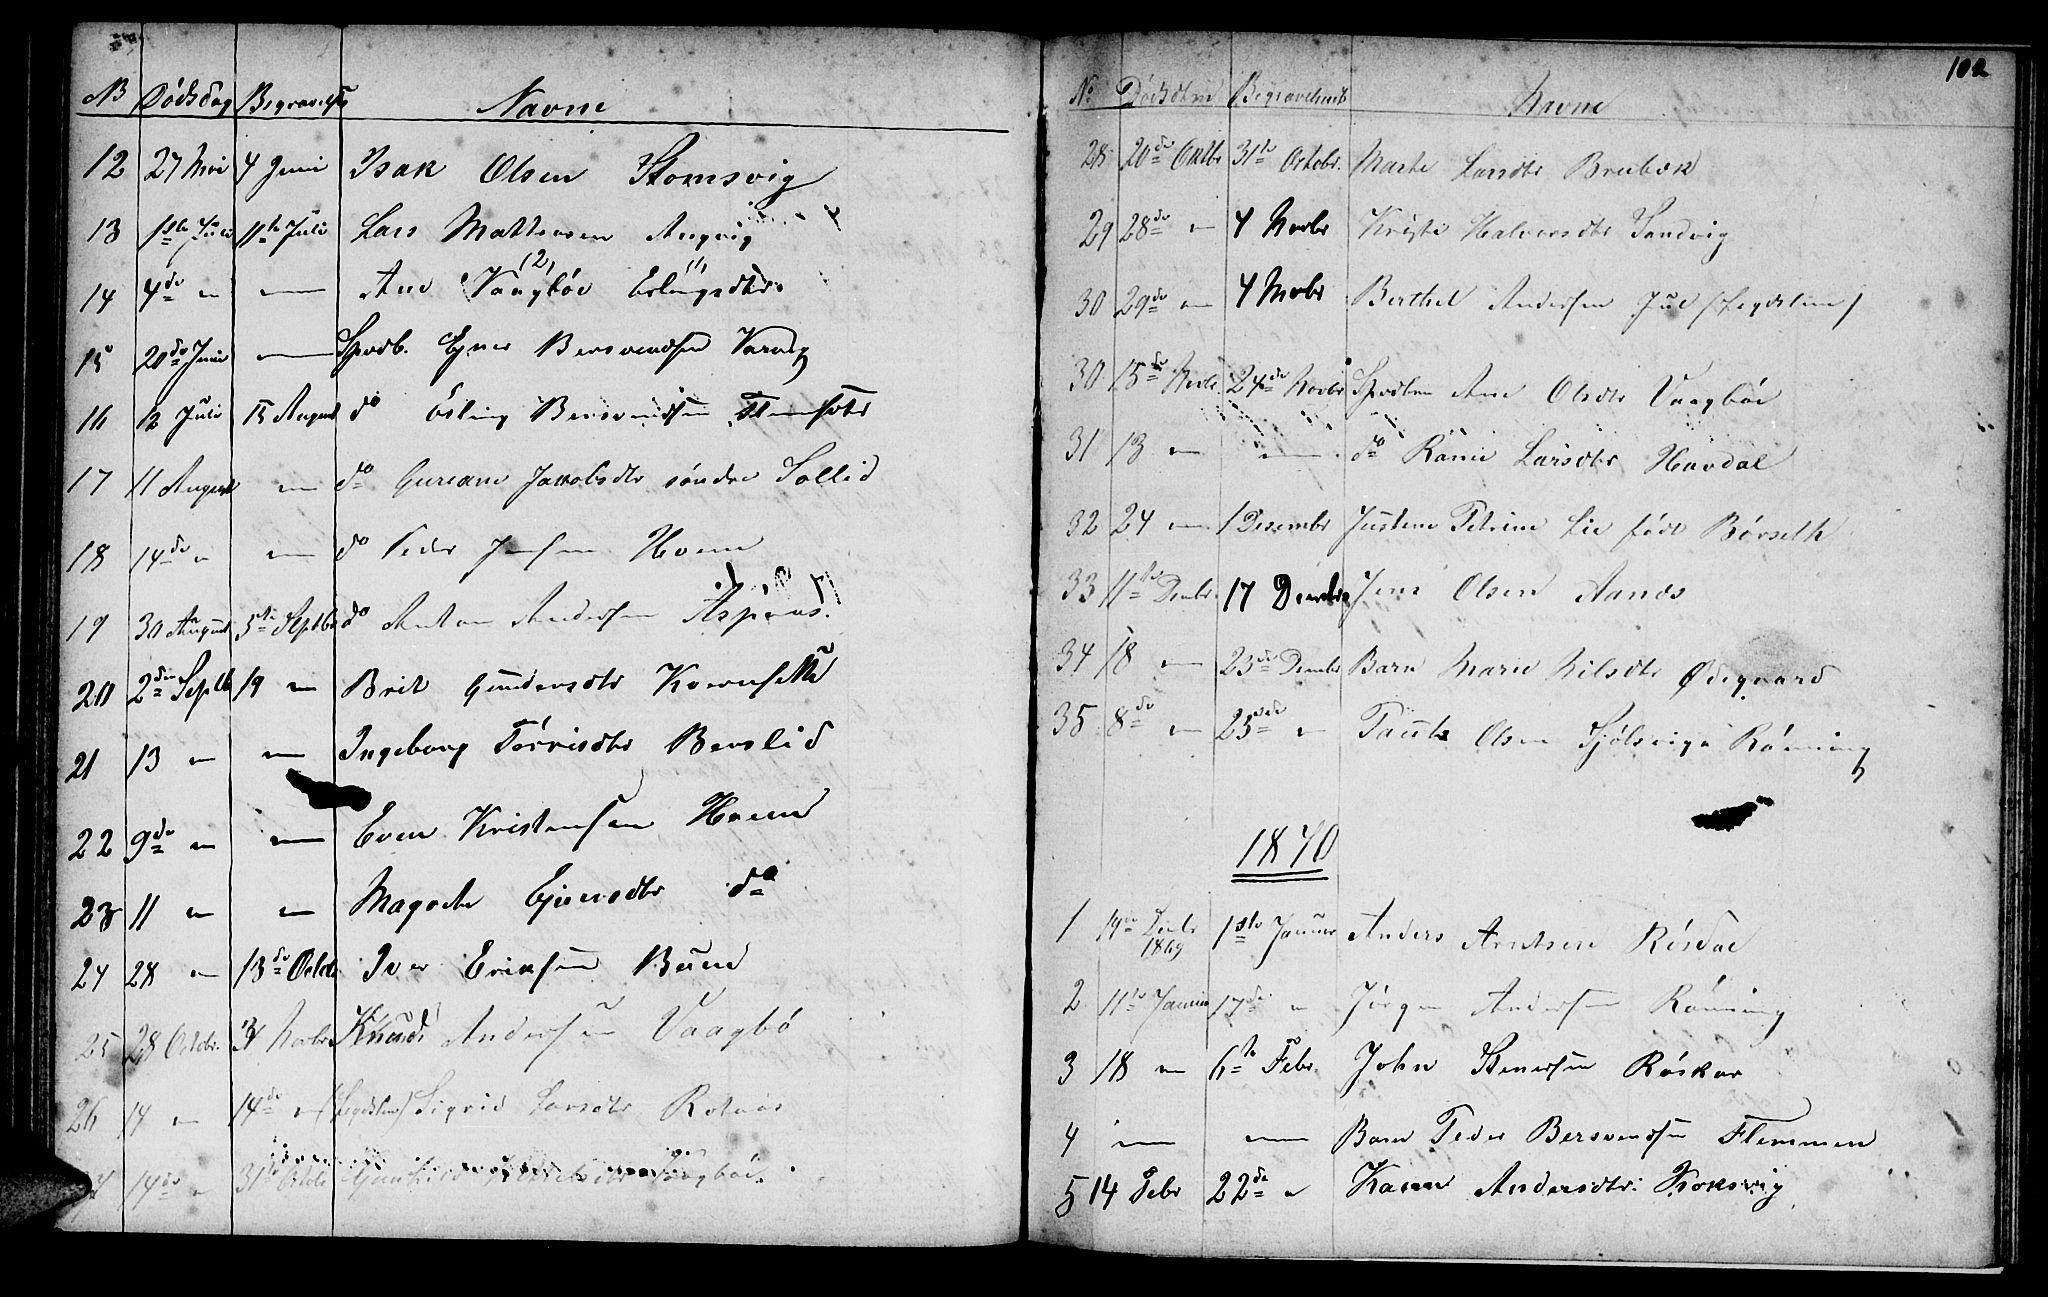 N Dødsdag Begravelses Navne
12 27 Mai 4 Juni Isak Olsen Stomsvig
13 1ste Juli 11te Juli Lars Mattessen Angvig
14 4de " — Ane Vaagbøe Erlingsdtr.
15 20de Juni — Spædb. Ejner Bersvendsen Varvig
16 12 Juli 15 August do Erling Bersvendsen
17 11 August — do Gureane Jakobsdtr søndre Sollid
18 14de " — do Peder Jensen Hoem
19 30 August 5te Septbr do Anton Andersen Aspaas.
20 2den Septb 19 — Brit Gundersdtr Kvernsette
21 13 — — Ingeborg Tørrisdtr Berslid
22 9de — — Even Kristensen Hoem
23 11 — — Magrete Ejvensdtr do
24 28 — 13de Octob Iver Eriksen Buen
25 28 Octbr. 31 Knud Andersen Vaagbø
26 14 — 14de " (Legdslem) Sigrid Larsdtr Rotaas
14de " 31te Octob Vaagbøe
102
No Dødsdtm Begravelsest Navne
28 20de Oktbr 31te Octobr. Marte Larsdtr Brubæk
29 28de — 4 Novbr Kristi Halvorsdtr Sandvig
30 29de — 4 Novbr Berthel Andersen Jul (Legdslem)
30 15de Novbr 24de Novbr Spædbn Ane Olsdtr Vaagbøe
31 13 — — do Ranie Larsdtr Havdal
32 24 — 1 Desembr Justine Petrine Lie født Børseth
33 11te Decbr 17 Decmbr Jens Olsen Aanes
34 18 — 23de Decmbr Barn Marie Nilsdtr Ødegaard
35 8de — 23de " Olsen Sjølsvigs Rønning
1870
1 19de Decbr 1869 1ste Januar Anders Arntsen Røsdal
2 11te Januar 17de " Jørgen Andersen Rønning
3 18 — 6te Febr. John Stenersen Røskar
4 — — Barn Peder Bersvendsen Flemmen
5 14 Febr 22de " Karen Andersdtr. Koksvig